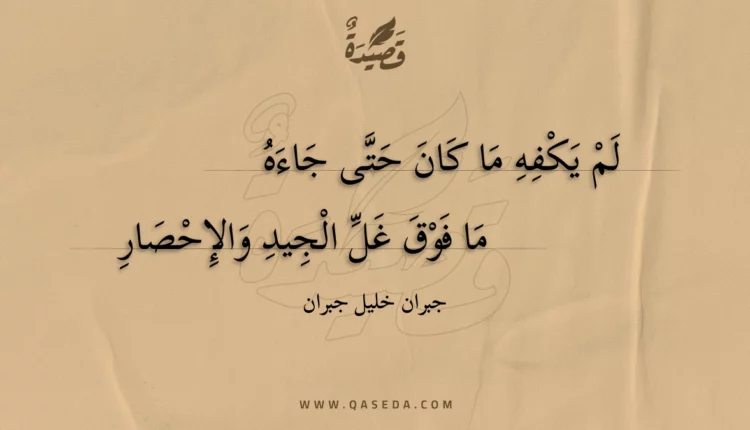 قَصِيدَةٌ
لَمْ يَكْفِهِ مَا كَانَ حَتَّى جَاءَهُ
مَا فَوْقَ غَلِّ الْجِيدِ وَالإِحْصَارِ
جبران خليل جبران
WWW.QASEDA.COM